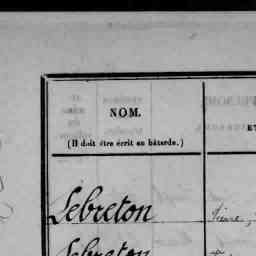 NOM.
ET
(Il doit être écrit en bâtarde.)
Lebreton Pierre,
Lebreton